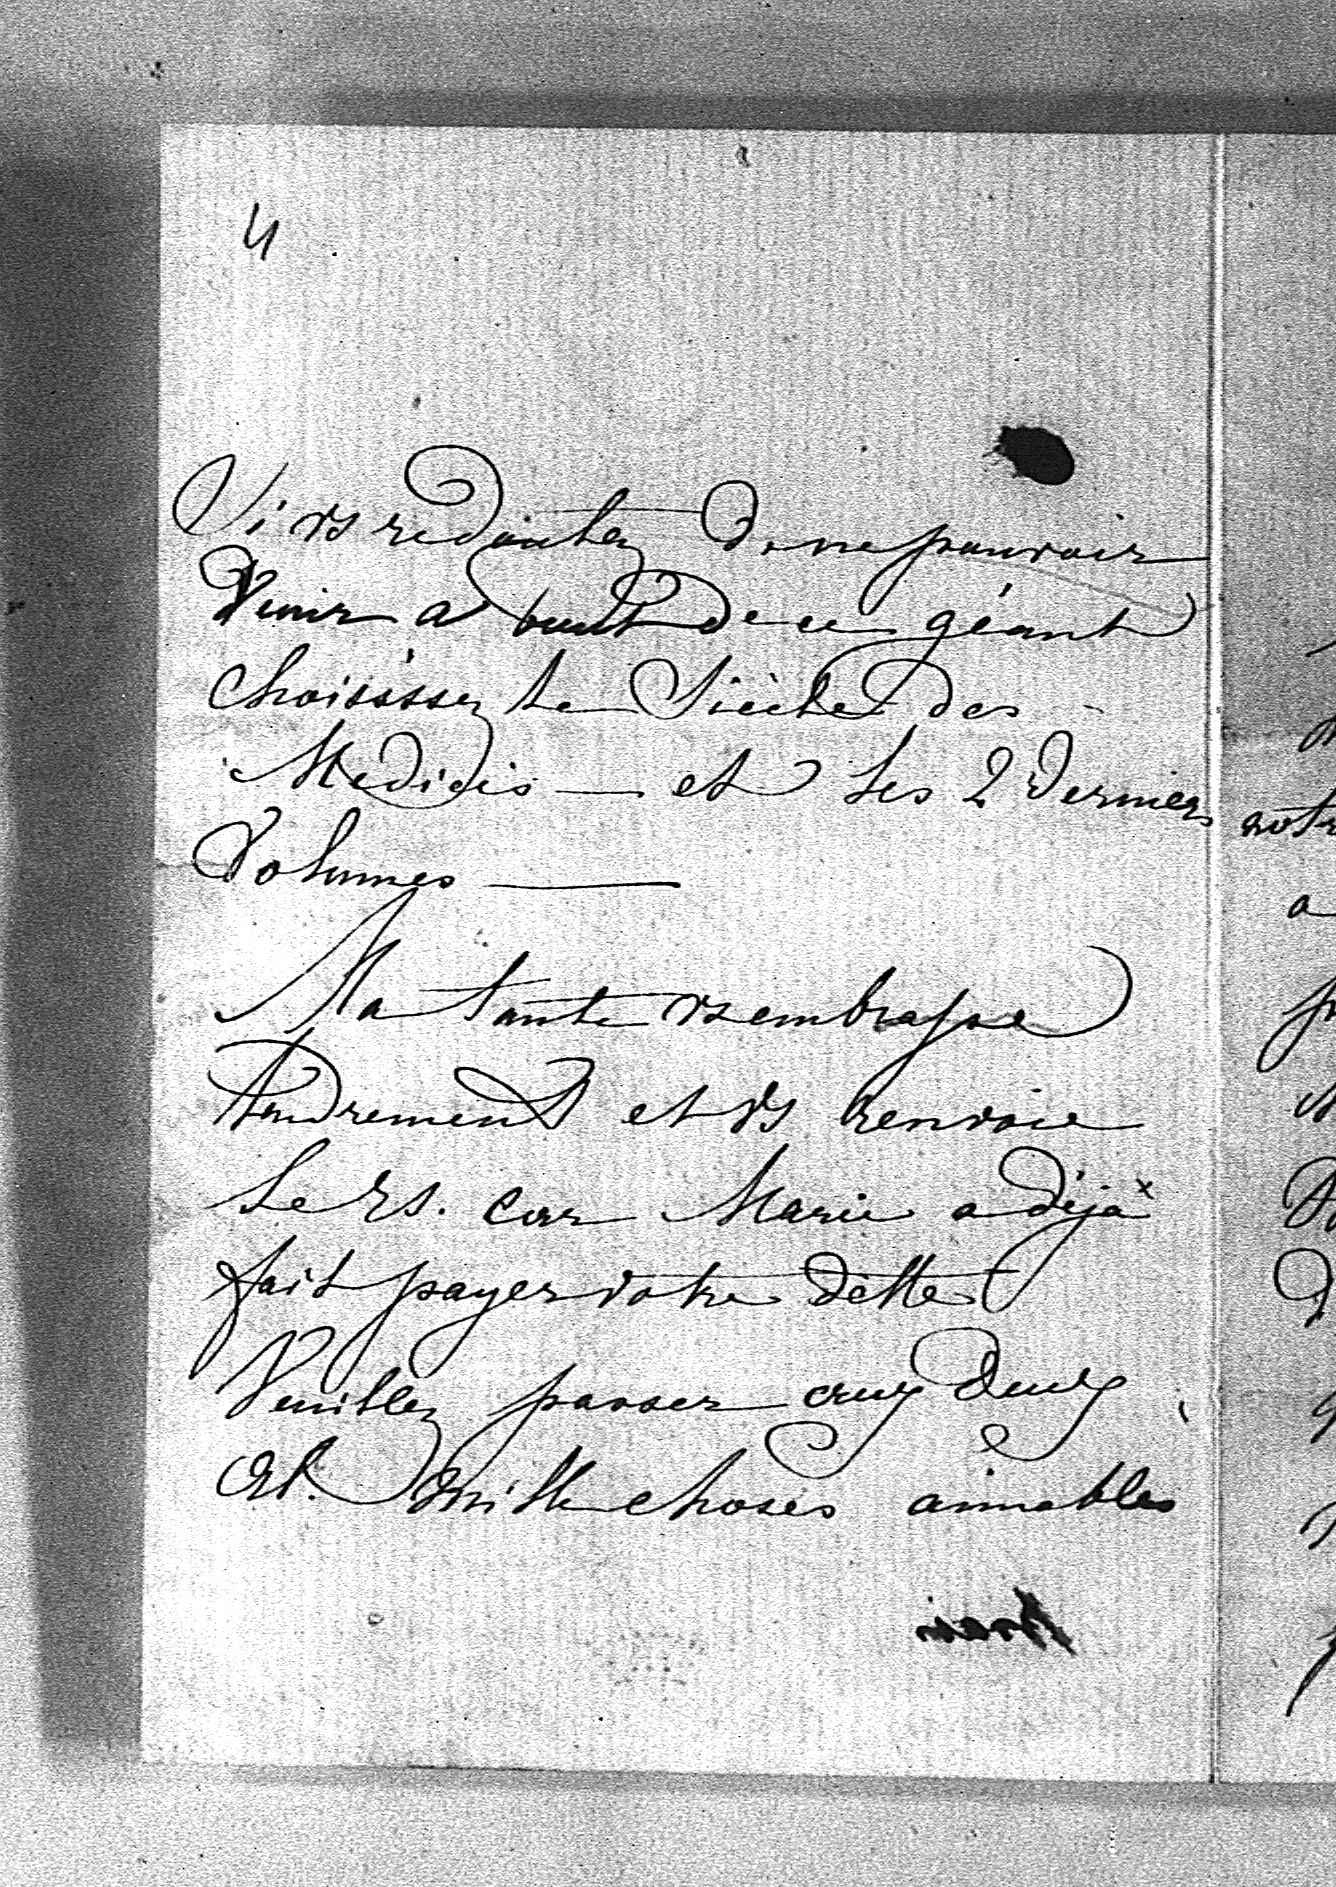 4
Si vs redoutez de ne pouvoir
Venir a bout de ce géant
choisissez le Siècle des
Medicis — et les 2 derniers
Volumes —
Ma tante vs embrasse
tendrement et vs renvoie
le rs. car Marie a déjà
fait payer votre dette
Veuillez passer
et mille choses aimables